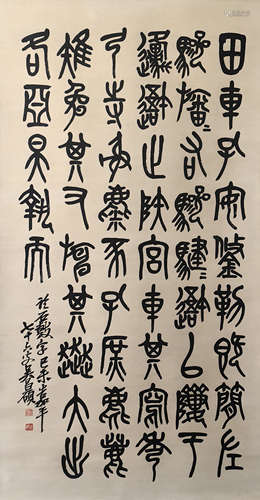 田車孔安鋚勒既簡左
驂旛=右驂騝=避以隮于
邍避止陜宮車其寫秀
弓寺射麋豕孔庶麀鹿
雉兔其又其大出
各亞昊執而
石鼓字己未嘉平
七十六叟吳昌碩